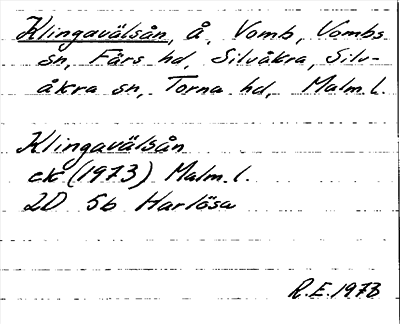 Klingavälsån, å, Vomb, Vombs
sn, Färs hd, Silvåkra, Silv-
åkra sn, Torna hd, Malm. l.
Klingavälsån
ek (1973) Malm. l.
2D 5b Harlösa
R.E. 1978